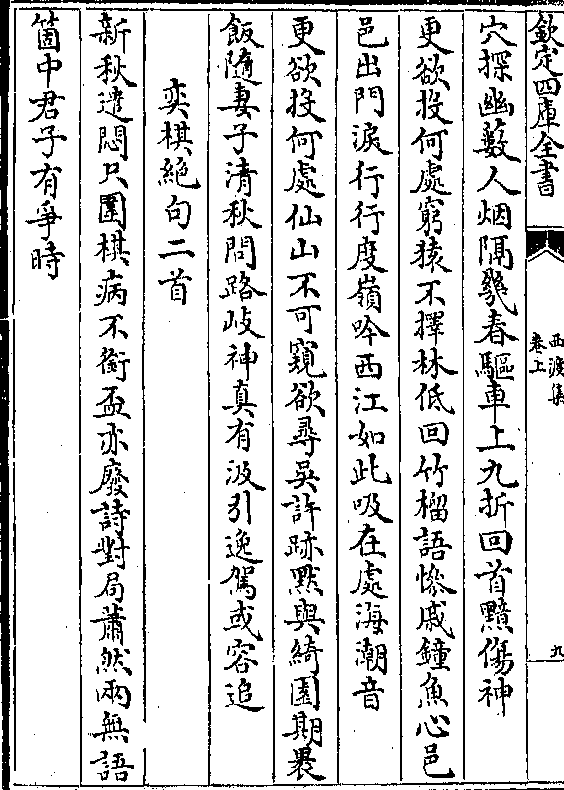 欽定四庫全書
西渡集
卷上
九
穴探幽藪人烟隔幾春驅車上九折回首黯傷神
更欲投何處窮猿不擇林低回竹榴語慘戚鐘魚心邑
邑出門淚行行度嶺吟西江如此吸在處海潮音
更欲投何處仙山不可窺欲尋吳許跡黙與綺園期裹
飯隨妻子清秋問路歧神真有汲引逸駕或容追
奕棋絶句二首
新秋遣悶只圍棋病不銜盃亦廢詩對局蕭然兩無語
箇中君子有爭時